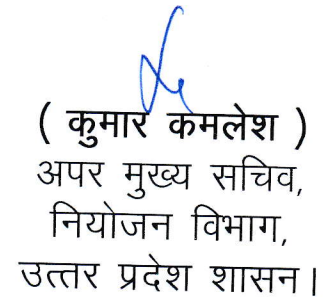 ( कुमार कमलेश )
अपर मुख्य सचिव,
नियोजन विभाग,
उत्तर प्रदेश शासन।